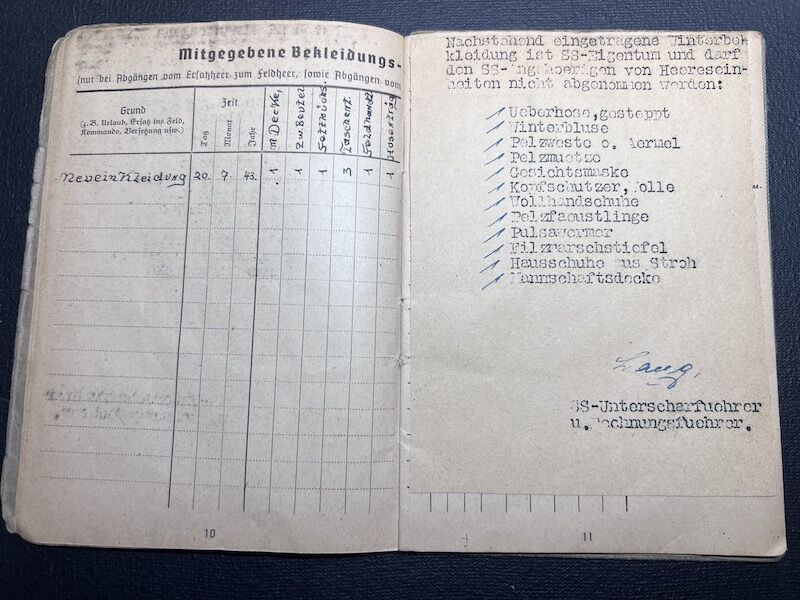 Mitgegebene Bekleidungs-
(nur bei Abgängen vom Ersatzheer zum Feldheer, sowie Abgängen vom
Grund
(z. B. Urlaub, Ersatz ins Feld,
Kommando, Versetzung usw.)
Zeit
Tag
Monat
Jahr
Decke,
Neueinkleidung 20. 7. 43. 1 1 1 3 1 1
10
Nachstehend eingetragene Winterbek
kleidung ist SS-Eigentum und darf
den SS-Angehoerigen von Heeresein-
heiten nicht abgenommen werden:
Ueberhose,gesteppt
Winterbluse
Pelzweste o. Aermel
Pelzmuetze
Gesichtsmaske
Kopfschutzer,Wolle
Wollhandschuhe
Pelzfaeustlinge
Pulswaermer
Filzmarschstiefel
Hausschuhe aus Stroh
Mannschaftsdecke
Lang.
SS-Unterscharfuehrer
u.Rechnungsfuehrer.
11